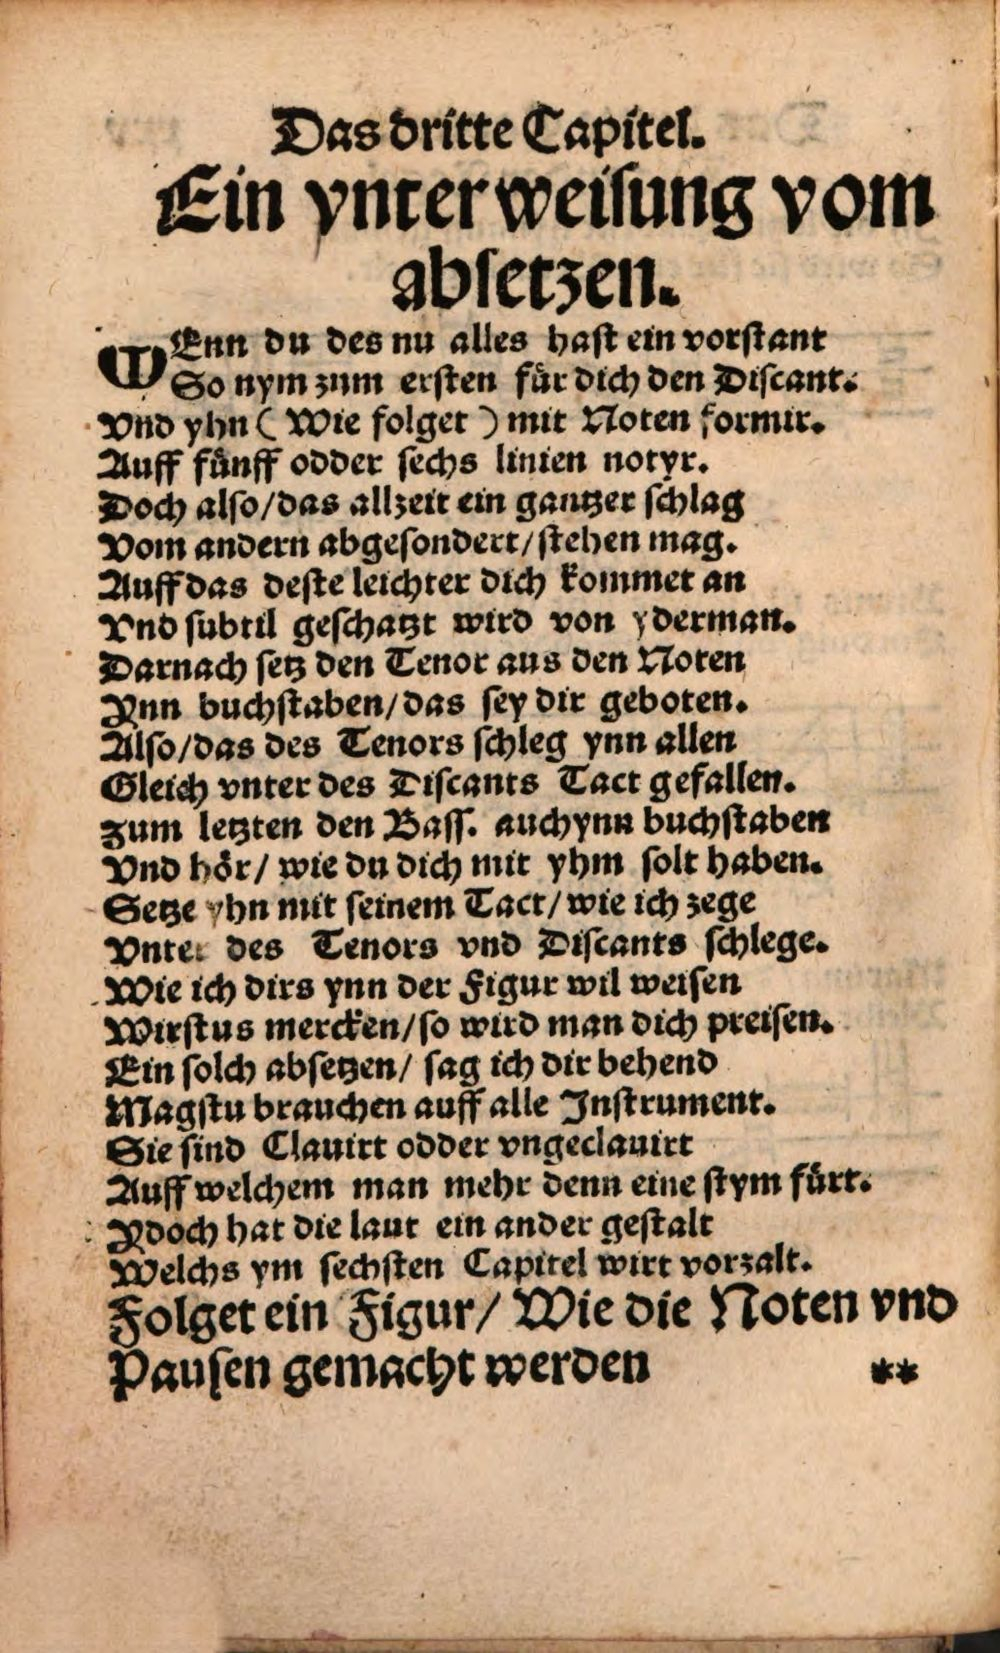 Das dritte Capitel.
Ein vnterweisung vom
absetzen.
WEnn du des nu alles hast ein vorstant
So nym zum ersten für dich den Discant.
Vnd yhn ( Wie folget ) mit Noten formir.
Auff fünff odder sechs linien notyr.
Doch also/das allzeit ein gantzer schlag
Vom andern abgesondert/stehen mag.
Auff das deste leichter dich kommet an
Vnd subtil geschatzt wird von yderman.
Darnach setz den Tenor aus den Noten
Ynn buchstaben/das sey dir geboten.
Also/das des Tenors schleg ynn allen
Gleich vnter des Discants Tact gefallen.
Zum letzten den Bass. auch ynn buchstaben
Vnd hör/ wie du dich mit yhm solt haben.
Setze yhn mit seinem Tact/wie ich zege
Vnter des Tenors vnd Discants schlege.
Wie ich dirs ynn der Figur wil weisen
Wirstus mercken/so wird man dich preisen.
Ein solch absetzen/ sag ich dir behend
Magstu brauchen auff alle Instrument.
Sie sind Clauirt odder vngeclauirt
Auff welchem man mehr denn eine stym fürt.
Ydoch hat die laut ein ander gestalt
Welchs ym sechsten Capitel wirt vorzalt.
Folget ein Figur/ Wie die Noten vnd
Pausen gemacht werden **